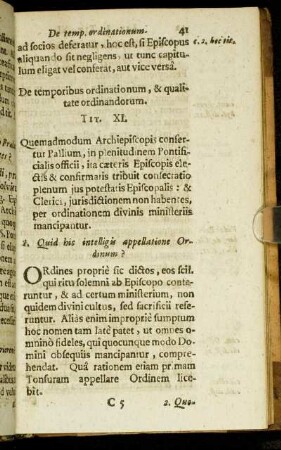 De temp. ordinationum. 41
ad socios deferatur, hoc est, si Episcopus c. 2. hoc tit.
aliquando sit negligens, ut tunc capitu-
lum eligat vel conferat, aut vice versâ.
De temporibus ordinationum, & quali-
tate ordinandorum.
TIT. XI.
Quemadmodum Archiepiscopis confer-
tur Pallium, in plenitudinem Pontifi-
cialis officii, ita cæteris Episcopis ele-
ctis & confirmatis tribuit consecratio
plenum jus potestatis Episcopalis: &
Clerici, jurisdictionem non habentes,
per ordinationem divinis ministeriis
mancipantur.
Quid his intelligis appellatione Or-
dinum?
ORdines propriè sic dictos, eos scil.
qui ritu solemni ab Episcopo confe-
runtur, & ad certum ministerium, non
quidem divini cultus, sed sacrificii refe-
runtur. Aliàs enim impropriè sumptum
hoc nomen tam latè patet, ut omnes o-
mninò fideles, qui quocunque modo Do-
mini obsequiis mancipantur, compre-
hendat. Quâ rationem etiam primam
Tonsuram appellare Ordinem lice-
bit.
C 5 2. Quo-